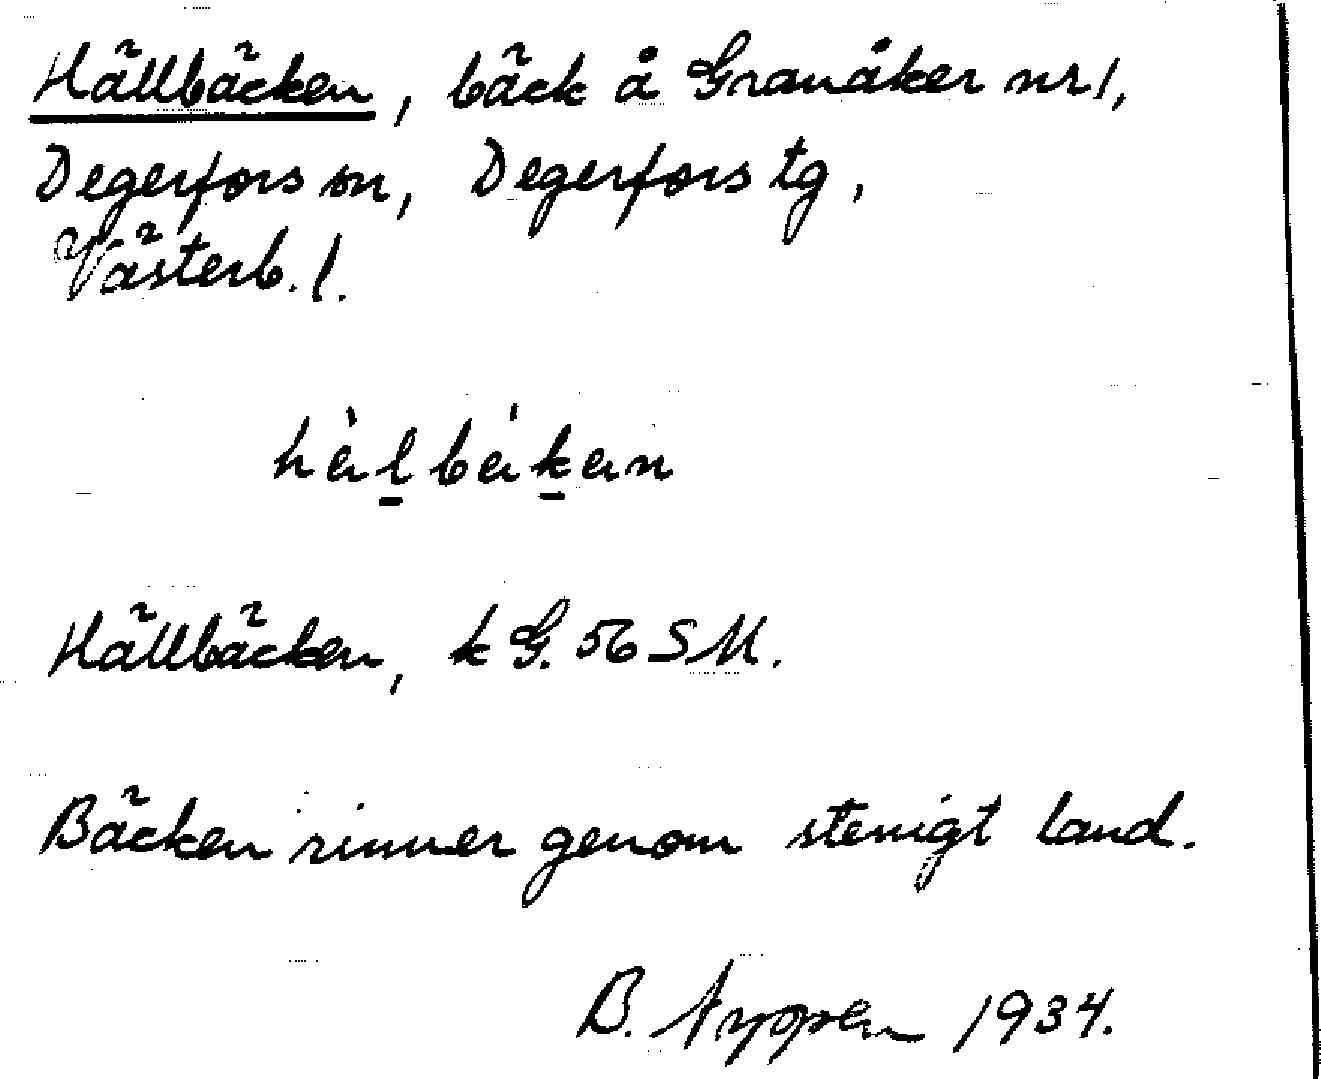 Hällbäcken, bäck å Granåker nr 1,
Degerfors sn, Degerfors tg,
Västerb. l.
Hällbäcken, k G. 56 SM.
Bäcken rinner genom stenigt land.
B. 1934.